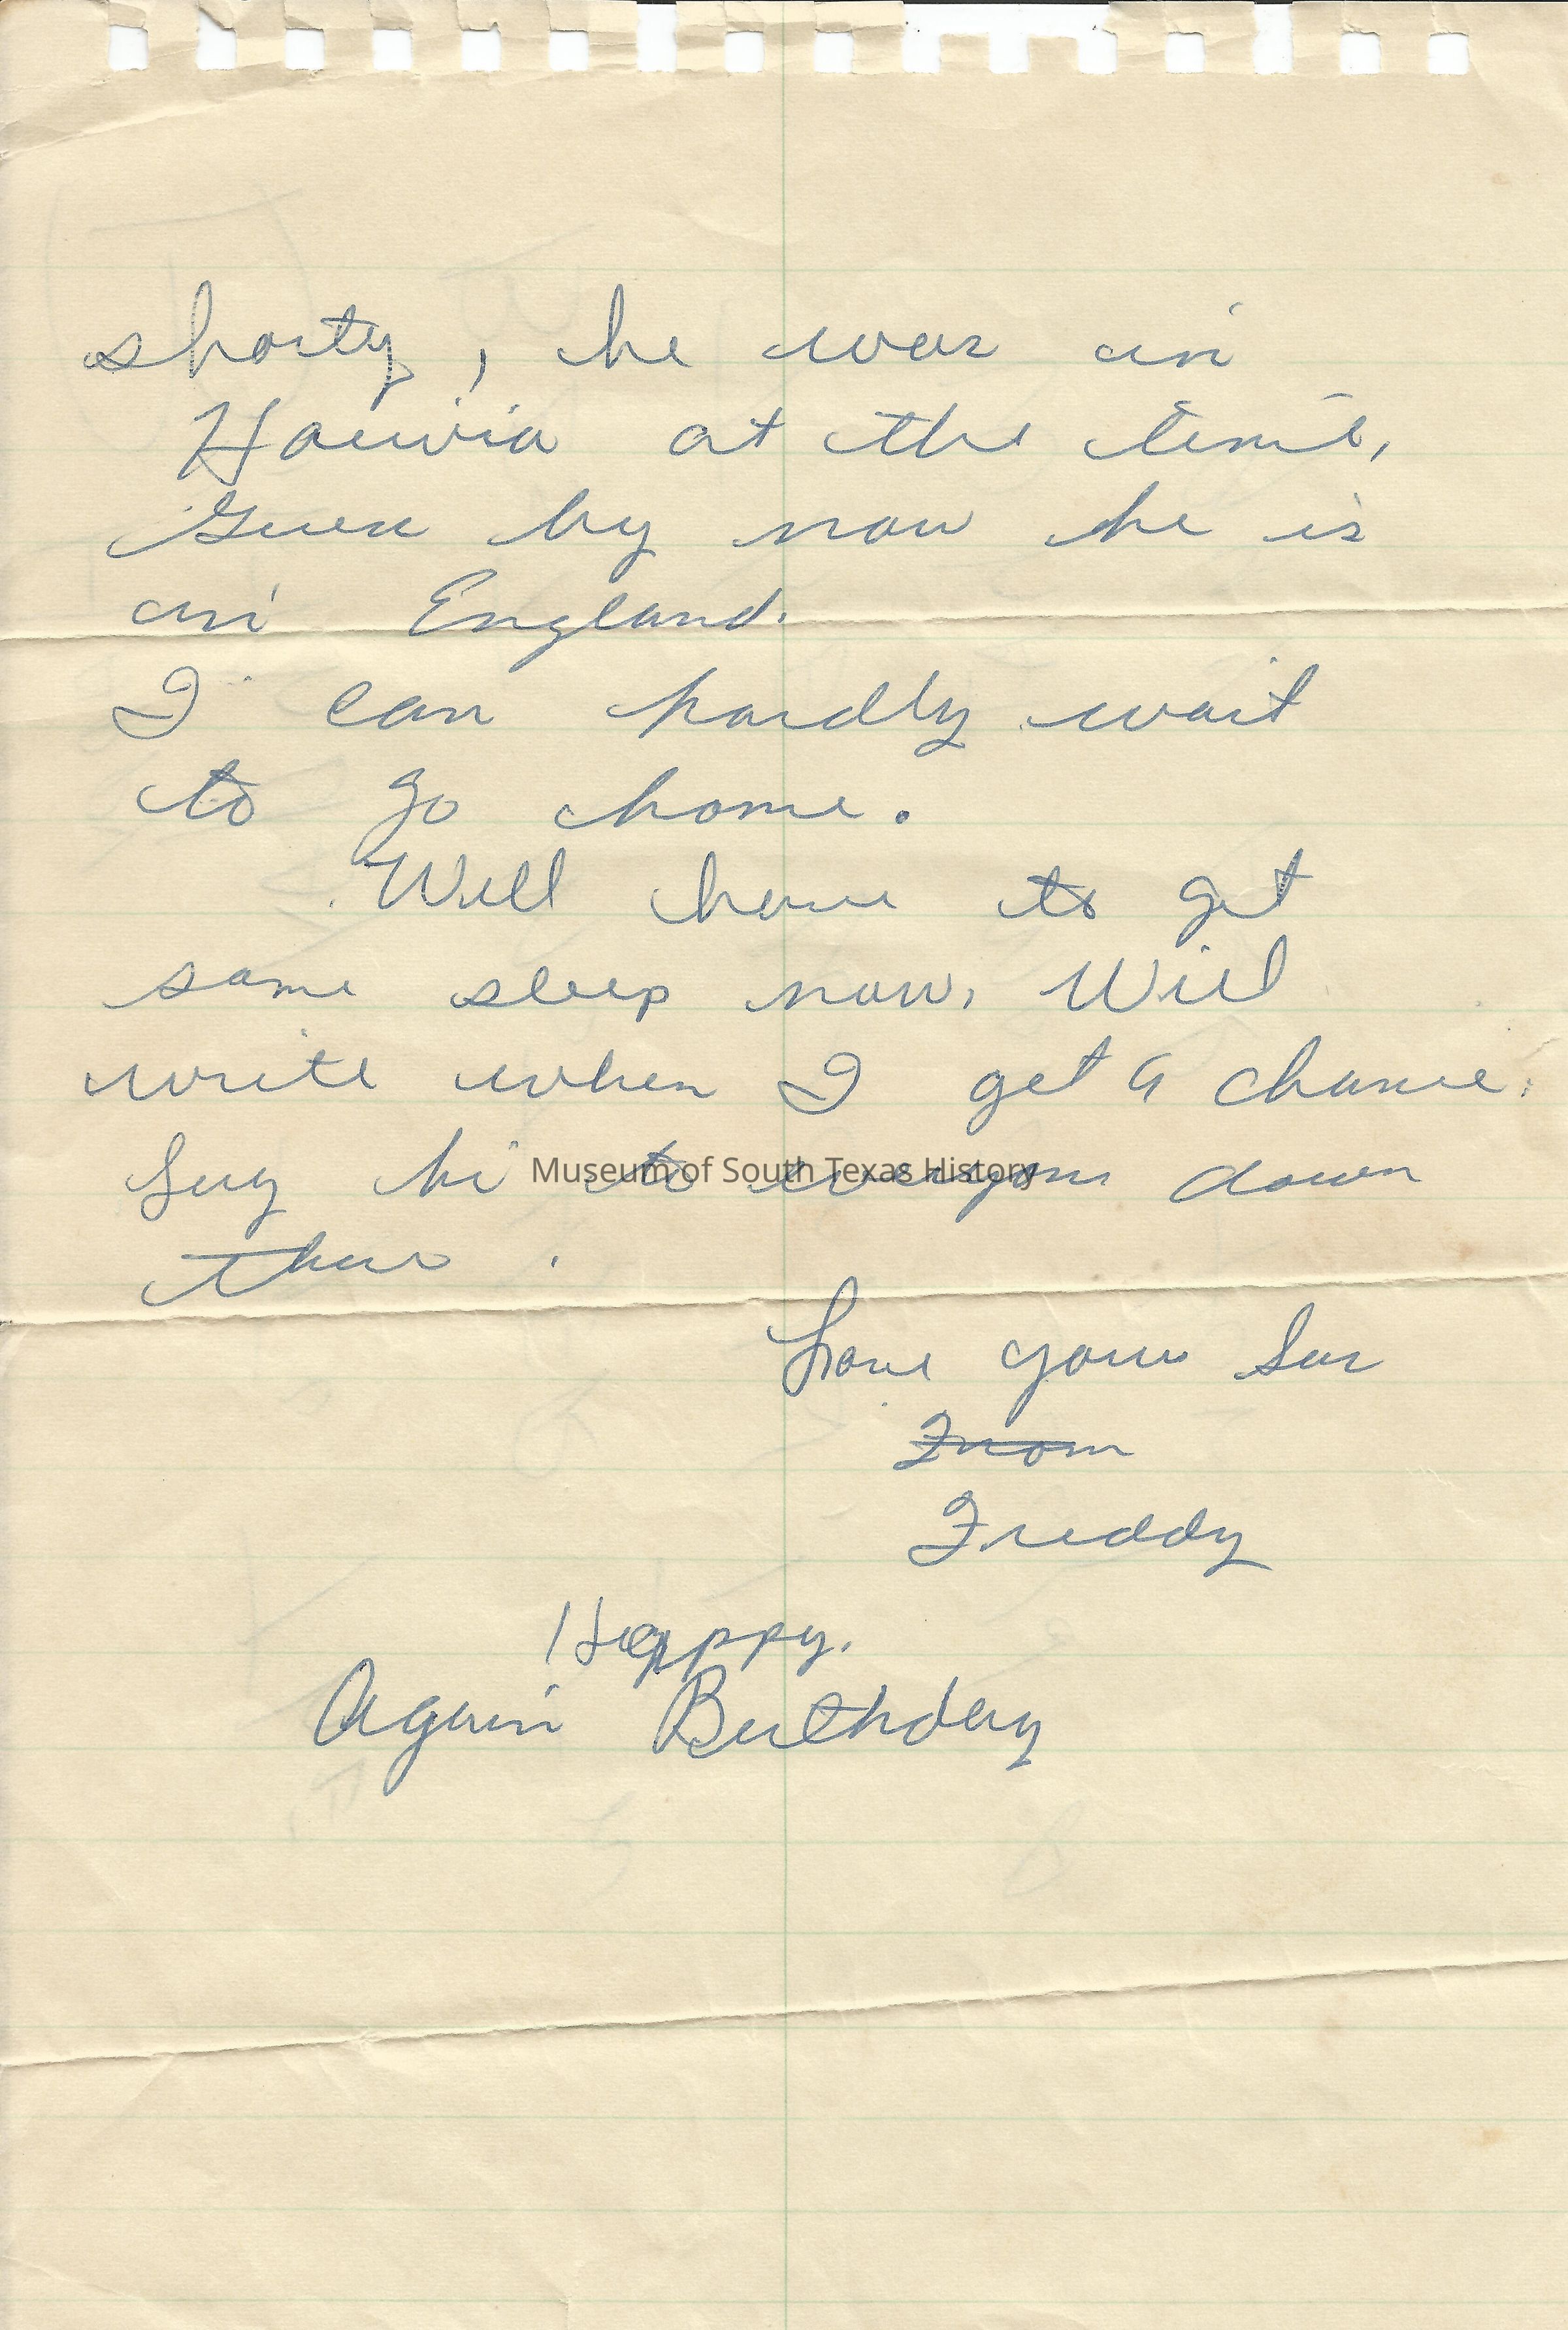 shorty, he was in
Hawia at the time,
Guess by now he is
in England.
I can hardly wait
to go home.
Well have to get
some sleep now, Will
write when I get a chance.
Say hi to everyone down
there.
Love your Son
From
Freddy
Happpy.
Again Birthday
Museum of South Texas History